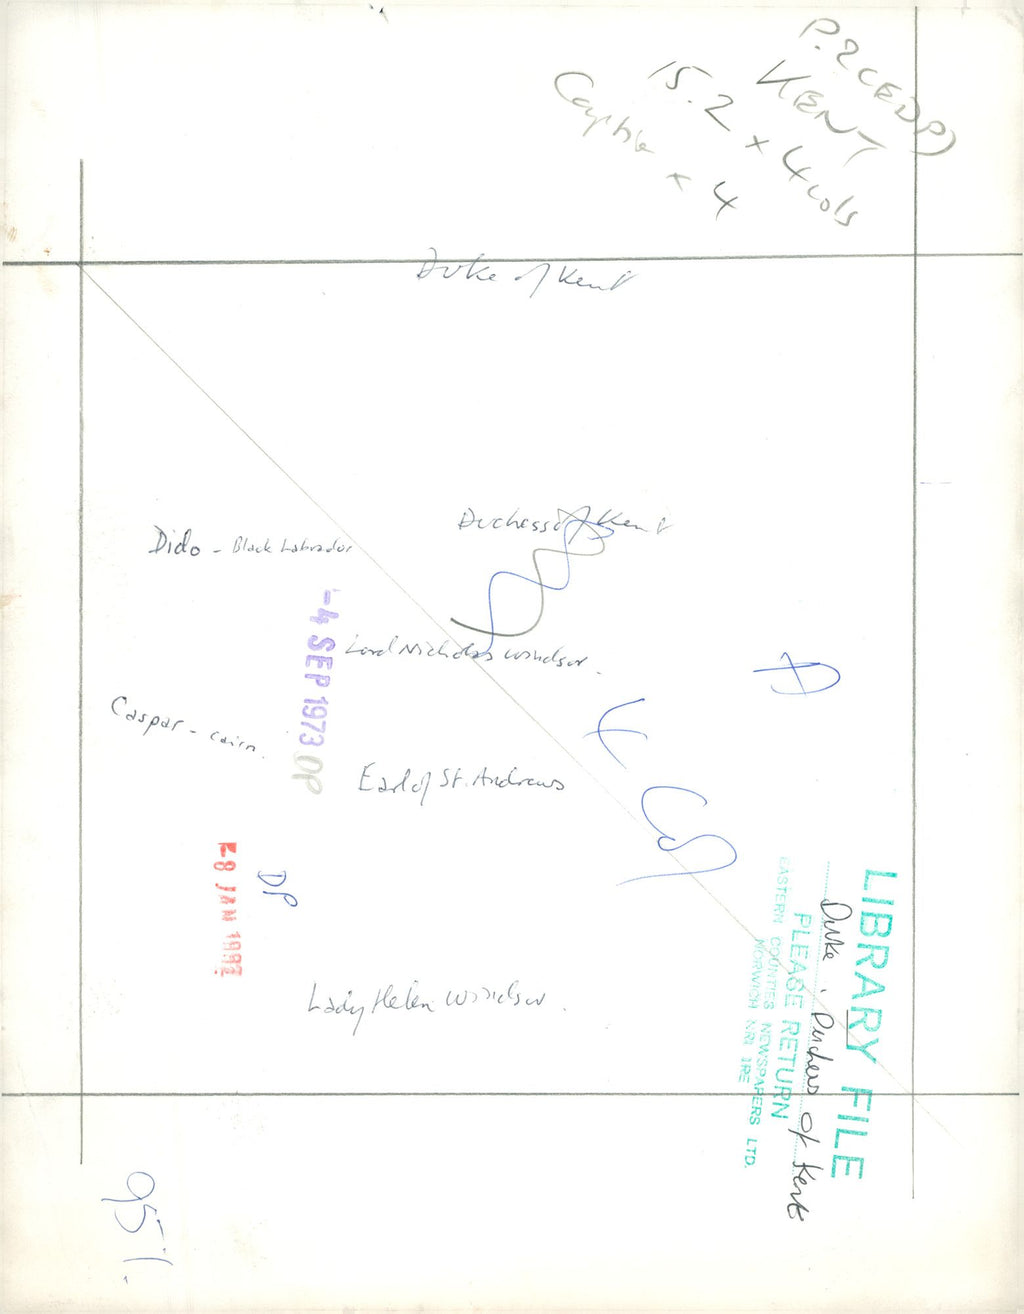 P.2 (EDP)
KENT
15.2 x 4 cols
Caption x 4
Duke of Kent
Duchess of Kent
Dido - Black Labrador
-4 SEP 1973
OP
Lord Nicholas Windsor.
Caspar - cairn.
Earl of St. Andrews
8 JAN 1992
DP
Lady Helen Windsor.
LIBRARY FILE
Duke. Duchess of Kent
PLEASE RETURN
EASTERN COUNTIES NEWSPAPERS LTD.
NORWICH NR1 1RE
95%